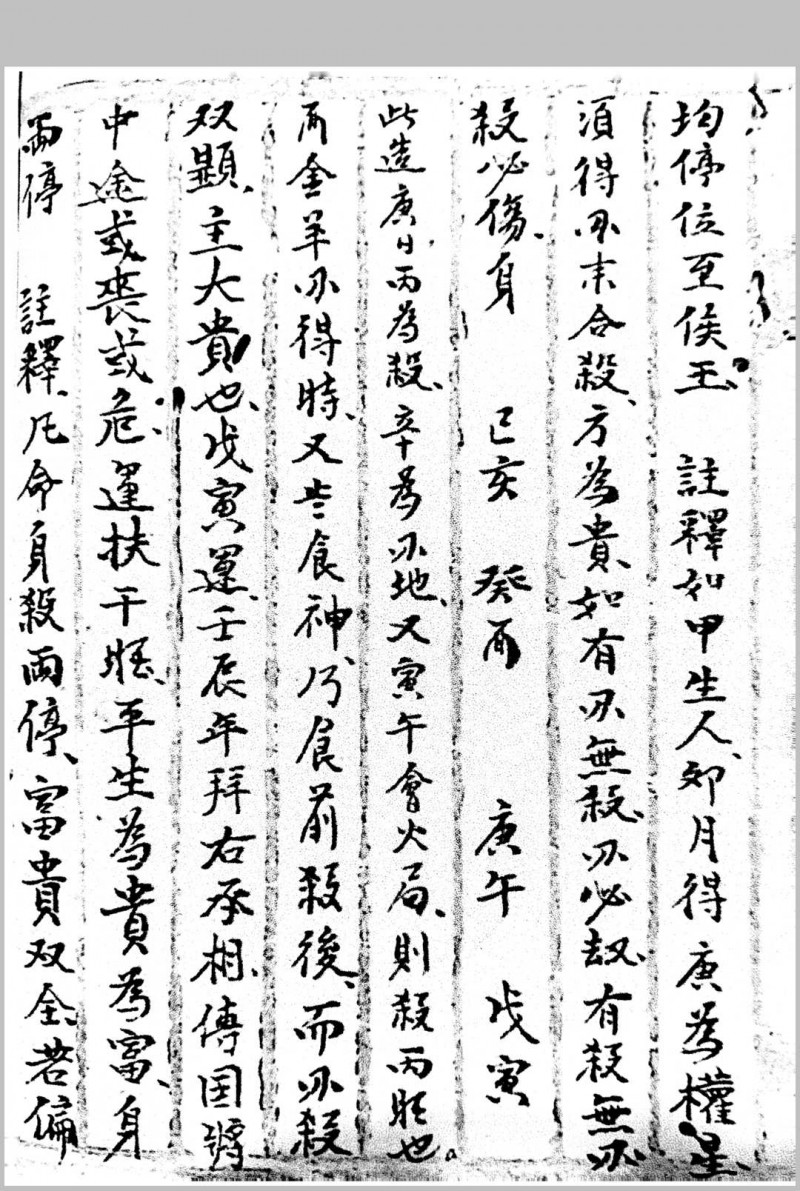 均停位至侯王 註釋如甲生人卯月得庚為權星
須得刃来合殺方為貴如有刃無殺刃必劫有殺無刃
殺必傷身 己亥 癸酉 庚午 戊寅
此造庚日丙為殺辛為刃地又寅午會火局則殺丙旺也
酉金羊刃得時又食神乃食前殺後而刃殺
双顯主大貴也戊寅運壬辰年拜右丞相傅国
中途或喪或危運扶干旺平生為貴為富身
兩停 註釋凡命身殺兩停富貴双全若偏